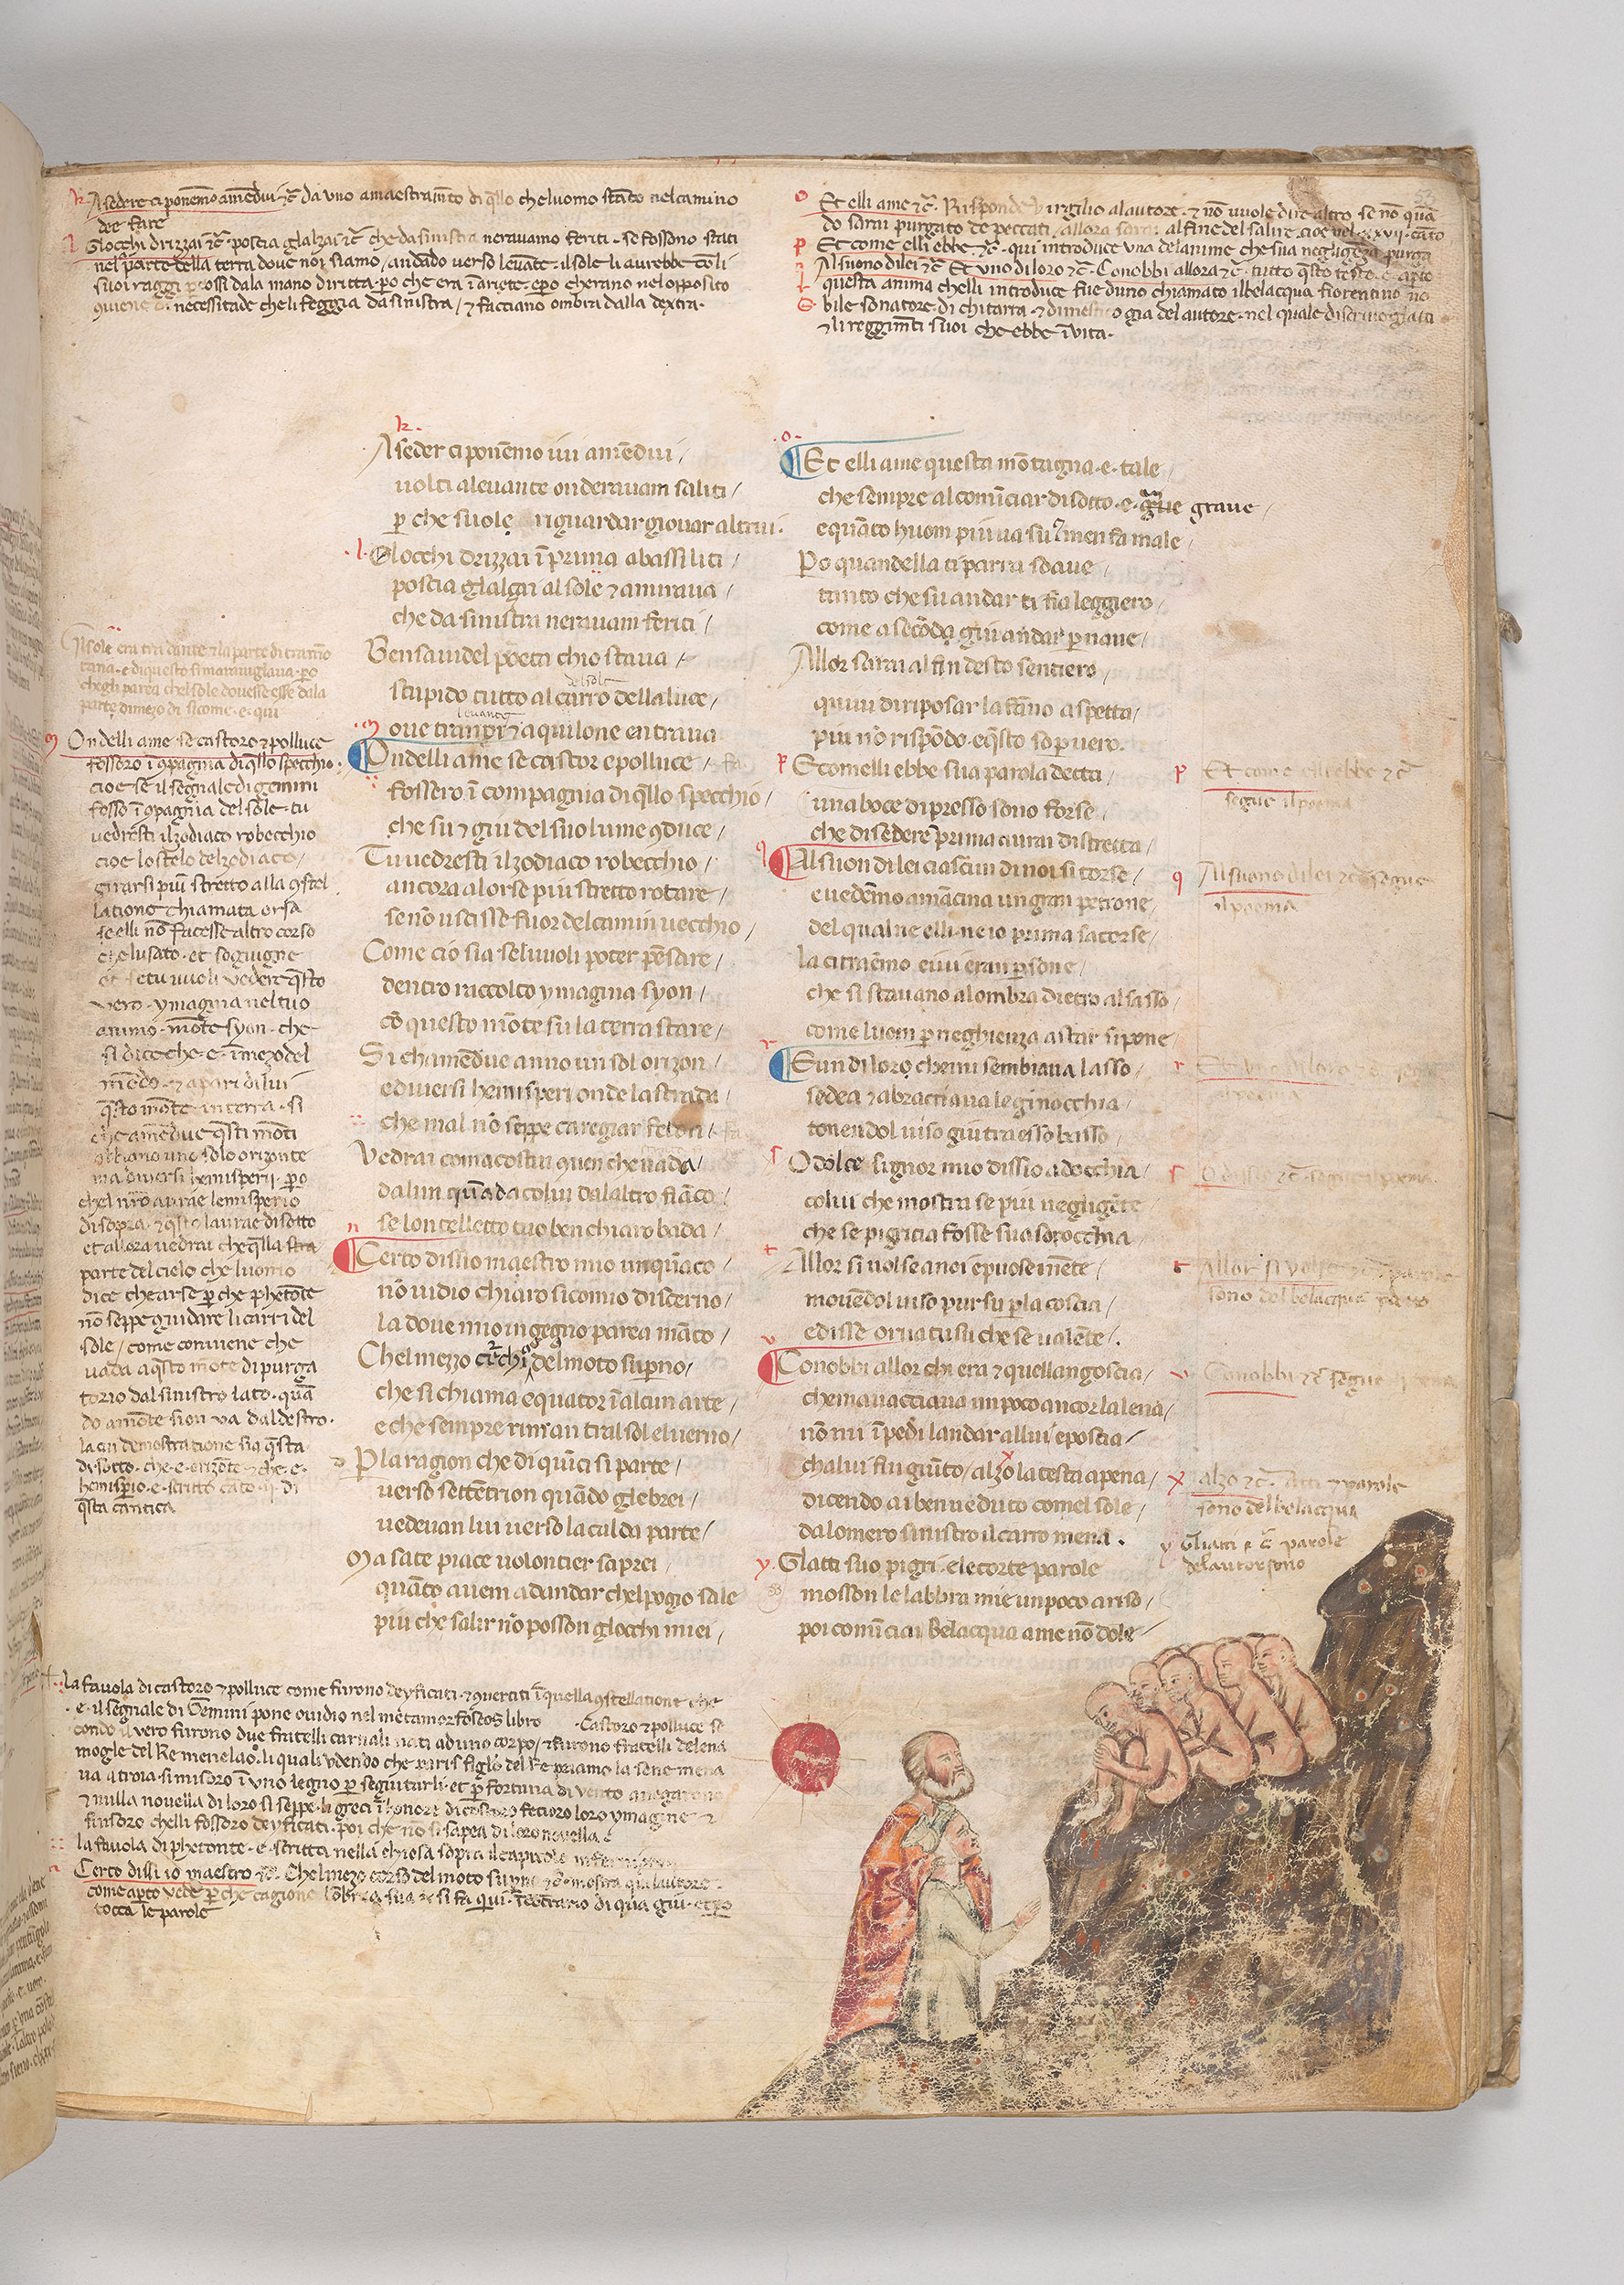 Asedere ci ponemo amendui etc̄ da uno amaestramēto di q̄llo cheluomo stācto nelcamino
dee fare
Glocchi drizzai etc̄ · poscia glialzai etc̄ che dasinistra neravamo feriti · se fossono stati
nel parte della terra dove noi siamo / andādo verso levāte · ilsole li avrebbe colti
suoi raggi dala mano diritta · po che era ī ariete · epo cherano nel opposito
necessitade cheli feggia da sinistra / ⁊ facciano ombra dalla dextra ·
o Et elli ame etc̄ · Risponde virgilio al autore · ⁊ nō vuole dire altro se nō quā
do sarai purgato de peccati / allora sara al fine del salire · cioe nel xxvii · cāto
p Et come elli ebbe etc̄ · qui introduce una delanime che sua negligēza purga
Al suono di lei etc̄ Et uno di loro etc̄ · Conobbi allora etc̄ · tutto q̄sto testo · e · apto
questa anima chelli introduce fue duno chiamato ilbelacqua fiorentino no
bile sonatore · di chitarra · ⁊ dimestico gia del autore · nel quale discrive gliatti
⁊ li reggimēti suoi che ebbe ī vita ·
k ·
A seder ci ponēmo ivi amēdui /
volti alevante onderavam saliti /
p che suole riguardar giovar altrui ·
· l · Glocchi drizzai ī prima abassi liti /
poscia glalzai al sole ⁊ amirava /
che da sinistra neravam feriti /
Ben savidel poeta chio stava /
del sole
stupido tutto al carro della luce /
levante
ove tra noi ⁊ aquilone entrava
· m Ondelli ame se castor e polluce /
fossero ī compagnia di q̄llo specchio /
che su ⁊ giu del suo lume ꝯduce /
Tu vedresti il zodiaco robecchio /
ancora alorse piu stretto rotare /
se nō uscisse fuor del camin vecchio /
Come cio sia sel vuoli poter pēsare /
dentro raccolto ymagina syon /
cō questo mōte su la terra stare /
Si chamēdue anno un sol orizon /
e diversi hemisperi onde la strada /
che mal nō seppe caregiar feton /
Vedrai coma costui quen che vada /
dalun quāda colui dalaltro fiāco /
se lontelletto tuo ben chiaro bada /
n
Certo dissio maestro mio unquāco /
nō vidio chiaro sicomio discerno /
la dove mio ingegno parea māco /
Chel mezzo cerchio del moto supno /
che si chiama equator ī alcun arte /
e che sempre riman tral sol el verno /
P la ragion che di quīci si parte /
verso settētrion quādo glebrei /
vedevan lui verso la calda parte /
Ma sate piace volontier saprei /
quāto avem adandar chel pogio sale
piu che salir nō posson glocchi miei /
· o ·
Et elli ame questa mōtagna · e · tale /
che sempre al comīciar di sotto · e · grave /
equāto huom piu va su ⁊ men fa male /
Po quandella ti parra soave /
tanto che su andar ti fia leggiero /
come a secōda giu andar p nave /
Allor sarai al fin desto sentiero /
quivi di riposar laffāno aspetta /
piu nō rispōdo · eq̄sto so p vero ·
p Ecomelli ebbe sua parola detta /
una boce di presso sono forse /
che di sedere prima avrai distretta /
q
Al suon di lei ciascun di noi si torse /
e vedēmo amācina un gran petrone /
del qual ne elli ne io prima sacorse /
La ci traēmo · eivi eran psone /
che si stavano alombra dietro al sasso /
come luom p neghienza a star si pone /
r
Eun di loro che mi sembiava lasso /
sedea ⁊ abracciava le ginocchia /
tenendol viso giu tra esso basso /
s O dolce signor mio dissio adocchia
colui che mostra se piu negligēte /
che se pigricia fosse sua serocchia
t Allor si volse anoi epuose mēte /
movēdol viso pur su p la coscia /
edisse or va tu su che se valēte / .
v
Conobbi allor chi era ⁊ quellangoscia /
che mavacciava un poco ancor la lena /
nō mi īpedi landar allui e poscia /
x
chalui fui giūto / alzo la testa apena /
dicendo ai ben veduto comel sole /
dalomero sinistro il carro mena .
y · Glatti suo pigri · ele corte parole
mosson le labbra mie un poco ariso /
poi comīciai Belacqua ame nō dole /
Il sole era tra dante ⁊ la parte di tramō
tana · e di questo si maraviglava · po
chegli parea chel sole dovesse esse dala
parte di mezo di sicome · e · qui
m Ondelli ame se castoro ⁊ polluce
fossoro ī ꝯpagnia di q̄llo specchio ·
cioe se il segnale di gemini
fosso ī ꝯpagnia del sole · tu
vedresti ilzodiaco robecchio
cioe lostelo delzodiaco /
girarsi piu stretto alla ꝯstel
latione chiamata orsa
se elli nō facesse altro corso
che lusato · et sogiugne
se tu vuoli vedere q̄sto
vero · ymagina nel tuo
animo · mōte syon · che
si dice che · e · ī mezo del
mōdo · ⁊ apari di lui
q̄sto mōte in terra · si
che amēdue q̄sti mōti
abbiano uno solo orizonte
ma diversi hemisperii · po
chel nrō avrae lemisperio
disopra · ⁊ q̄sto lavrae disotto
et allora vedrai che q̄lla stra
parte del cielo che luomo
dice che arse p che phetonte
nō seppe guidare li carri del
sole / come conviene che
vada a q̄sto monte di purga
torio dal sinistro lato · quā
do amōte sion va dal destro ·
la cui demostratione sia q̄sta
disotto · che · e · orizōte ⁊ che · e ·
hemisperio · e · scritto cāto · ii · di
q̄sta cantica
p Et come elli ebbe etc̄
segue il poema
q Al suono di lei etc̄ segue
il poema
r Et uno di loro
s O dissi etc̄ segue il poema
t Allor si volse parole
sono del belacqua
v Conobbi etc̄ segue
x alzo etc̄ · atti ⁊ parole
sono del belacqua
y Gliatti etc̄ parole
delautor sono
La favola di castoro ⁊ polluce come furono deyficati · ⁊ ꝯvertiti ī quella ꝯstellatione che
· e · il segnale di Gemini pone ovidio nel metamorfoseos libro · Castoro ⁊ polluce se
condo il vero furono due fratelli carnali nati aduno corpo / ⁊ furono fratelli delena
mogle del Re menelao · li quali udendo che paris figlo del Re priamo la sene mena
va a troia · si misoro ī uno legno p seguitarli · et p fortuna di vento anegarono
⁊ nulla novella di loro si seppe · li greci ī honore di costoro fecioro loro ymagine ⁊
finsoro chelli fossoro deyficati · poi che nō si sapea di loro novella
la favola di phetonte · e · scritta nella chiosa sopra il capitolo
Certo dissi io maestro etc̄ · Chel mezo corso del moto supno etc̄ mostra qui lautore
come apto vede p che cagione lōbra sua si fa qui · ī cōtrario di qua giu · et po
tocca le parole